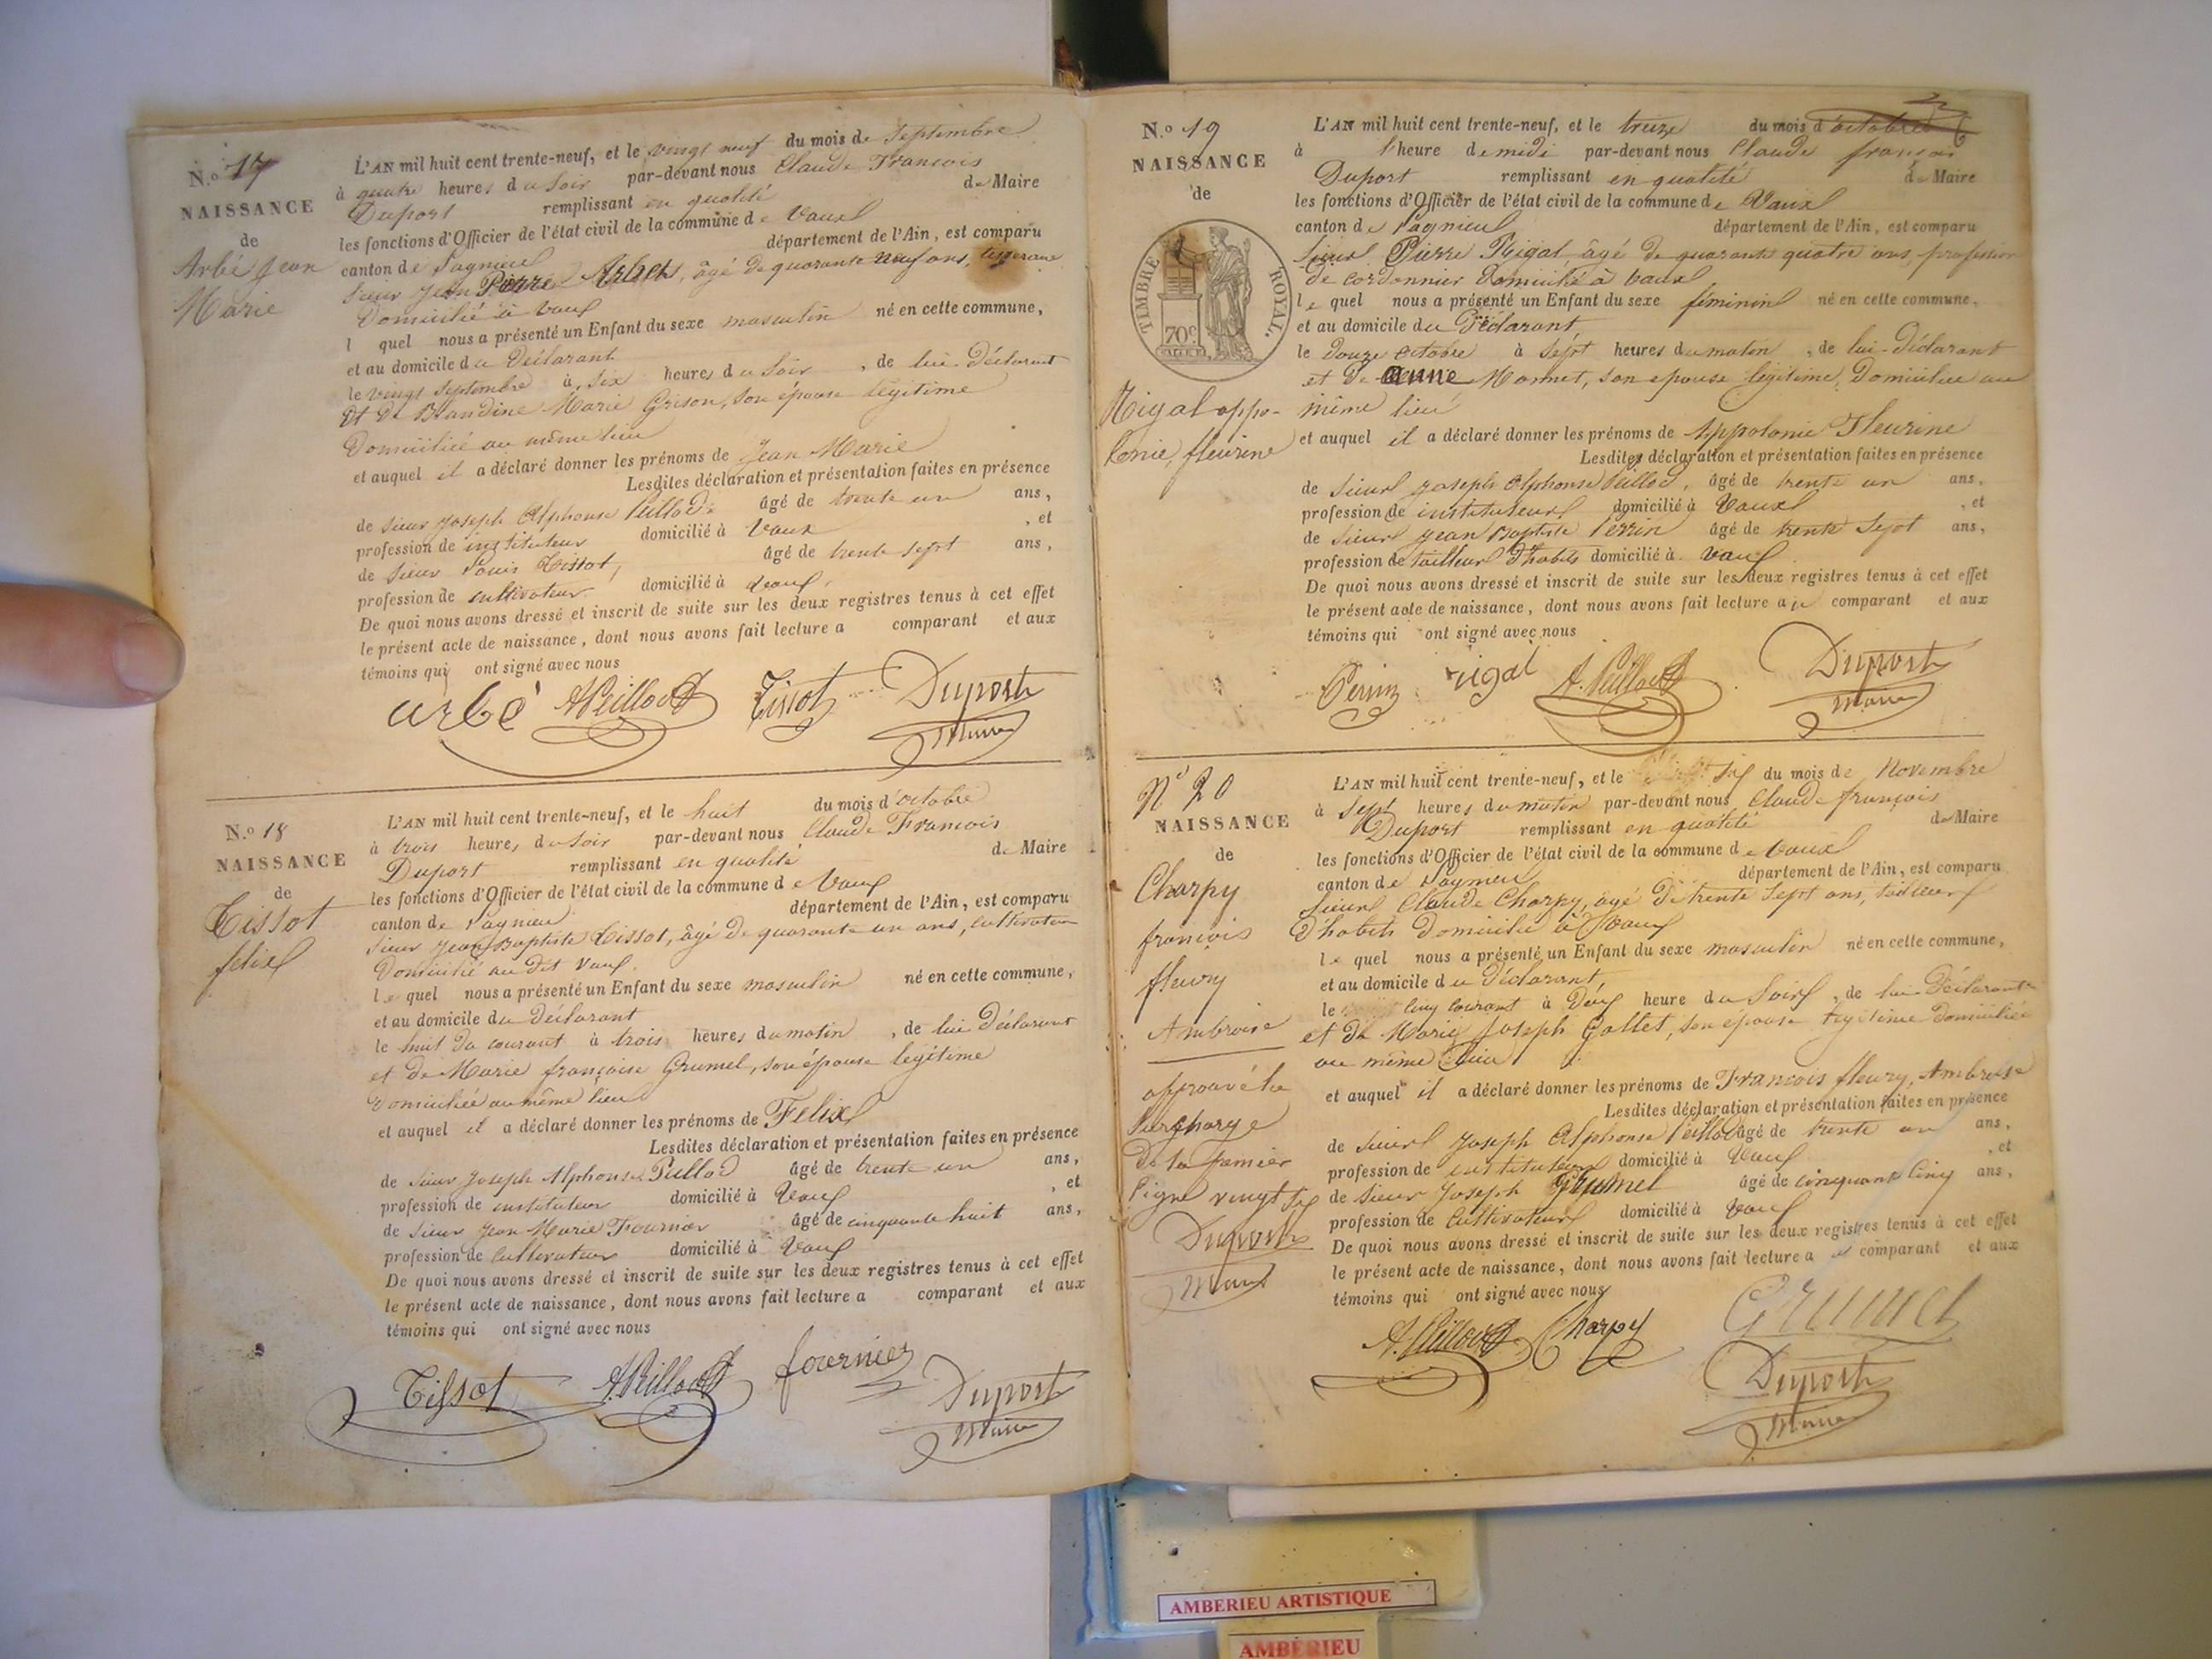 N.º 17
NAISSANCE
de
Arbé Jean
Marie
L'AN mil huit cent trente-neuf, et le vingt neuf du mois de Septembre
à quatre heures du Soir par-devant nous Claude François
Duport remplissant en qualité de Maire
les fonctions d'Officier de l'état civil de la commune de Vaux
canton de Lagnieu département de l'Ain, est comparu
Sieur Jean Pierre âgé de quarante neuf ans, tisserand
Domicilié à Vaux
l quel nous a présenté un Enfant du sexe masculin né en cette commune,
et au domicile du Déclarant
le vingt Septembre à six heures du Soir, de lui Déclarant
et de Blandine Marie Grison, son épouse légitime
Domiciliée au même lieu
et auquel il a déclaré donner les prénoms de Jean Marie
Lesdites déclaration et présentation faites en présence
de Sieur Joseph Alphonse Peillod âgé de trente un ans,
profession de instituteur domicilié à Vaux, et
de Sieur Louis Tissot, âgé de trente sept ans,
profession de cultivateur domicilié à Vaux.
De quoi nous avons dressé et inscrit de suite sur les deux registres tenus à cet effet
le présent acte de naissance, dont nous avons fait lecture a comparant et aux
témoins qui ont signé avec nous
arbé A Peillod Tissot Duport
Maire
N.º 18
NAISSANCE
de
Tissot
félix
L'AN mil huit cent trente-neuf, et le huit du mois d'octobre
à trois heures du Soir par-devant nous Claude François
Duport remplissant en qualité de Maire
les fonctions d'Officier de l'état civil de la commune de Vaux
canton de Lagnieu département de l'Ain, est comparu
Sieur Jean Baptiste Tissot, âgé de quarante un ans, cultivateur
Domicilié au dit Vaux.
le quel nous a présenté un Enfant du sexe masculin né en cette commune,
et au domicile du Déclarant
le huit du courant à trois heures du matin, de lui Déclarant
et de Marie françoise Grumel, son épouse légitime
Domiciliée au même lieu
et auquel il a déclaré donner les prénoms de Felix
Lesdites déclaration et présentation faites en présence
de Sieur Joseph Alphonse Peillod âgé de trente un ans,
profession de instituteur domicilié à Vaux, et
de Sieur Jean Marie Fournier âgé de cinquante huit ans,
profession de Cultivateur domicilié à Vaux
De quoi nous avons dressé et inscrit de suite sur les deux registres tenus à cet effet
le présent acte de naissance, dont nous avons fait lecture a comparant et aux
témoins qui ont signé avec nous
Tissot A Peillod fournier Duport
Maire
N.º 19
NAISSANCE
de
TIMBRE ROYAL.
70c
Rigal appo-
lonie, fleurine
L'AN mil huit cent trente-neuf, et le treize du mois d'octobre
à l'heure de midi par-devant nous Claude françois
Duport remplissant en qualité de Maire
les fonctions d'Officier de l'état civil de la commune de Vaux
canton de Lagnieu département de l'Ain, est comparu
Sieur Pierre Rigal âgé de quarante quatre ans, profession
de cordonnier Domicilié à Vaux
le quel nous a présenté un Enfant du sexe féminin né en cette commune,
et au domicile du Déclarant
le Douze octobre à sept heures du matin, de lui Déclarant
et de anne Monnet, son epouse légitime, Domiciliée au
même lieu
et auquel il a déclaré donner les prénoms de Appolonie Fleurine
Lesdites déclaration et présentation faites en présence
de Sieur Joseph Alphonse Peillod, âgé de trente un ans,
profession de instituteur domicilié à Vaux, et
de Sieur Jean Baptiste Perrin âgé de trente Sept ans,
profession de tailleur d'habits domicilié à Vaux
De quoi nous avons dressé et inscrit de suite sur les deux registres tenus à cet effet
le présent acte de naissance, dont nous avons fait lecture au comparant et aux
témoins qui ont signé avec nous
Perrin rigal A. Peillod Duport
Maire
N.º 20
NAISSANCE
de
Charpy
françois
fleury
Ambroise
approuvé la
Surcharge
De la premier
ligne vingt six
Duport
Maire
L'AN mil huit cent trente-neuf, et le six du mois de Novembre
à sept heures du matin par-devant nous Claude françois
Duport remplissant en qualité de Maire
les fonctions d'Officier de l'état civil de la commune de Vaux
canton de Lagnieu département de l'Ain, est comparu
Sieur Claude Charpy, âgé De trente Sept ans, tailleur
D'habits Domicilié à Vaux
le quel nous a présenté un Enfant du sexe masculin né en cette commune,
et au domicile du Déclarant
le cinq courant à Deux heure du Soir, de lui Déclarant
et de Marie Joseph Gallet, son épouse légitime Domiciliée
au même lieu
et auquel il a déclaré donner les prénoms de François fleury, Ambroise
Lesdites déclaration et présentation faites en présence
de Sieur Joseph Alphonse Peillod âgé de trente un ans,
profession de instituteur domicilié à Vaux, et
de Sieur Joseph Grumel âgé de cinquante Cinq ans,
profession de Cultivateur domicilié à Vaux
De quoi nous avons dressé et inscrit de suite sur les deux registres tenus à cet effet
le présent acte de naissance, dont nous avons fait lecture a comparant et aux
témoins qui ont signé avec nous
A. Peillod Charpy Grumel
Duport
Maire
AMBERIEU ARTISTIQUE
AMBÉRIEU